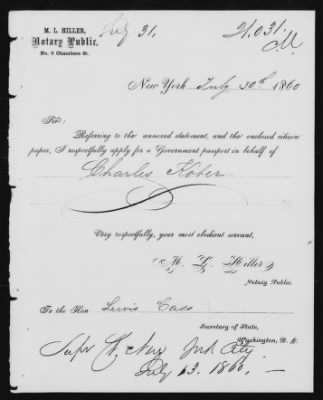 M. L. HILLER,
Notary Public,
No. 3 Chambers St.
July 31.
21.031.
New York July 30th 1860
Sir:
Referring to the annexed statement, and the enclosed citizen
paper, I respectfully apply for a Government passport in behalf of
Charles Kober
Very respectfully, your most obedient servant,
M. L. Hiller
Notary Public.
To the Hon Lewis Cass
Secretary of State,
Washington, D. C.
Super Ct, New York City
July 13. 1860. —